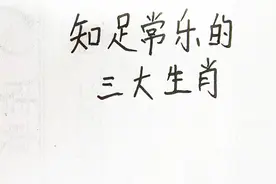 知足常乐的
三大生肖